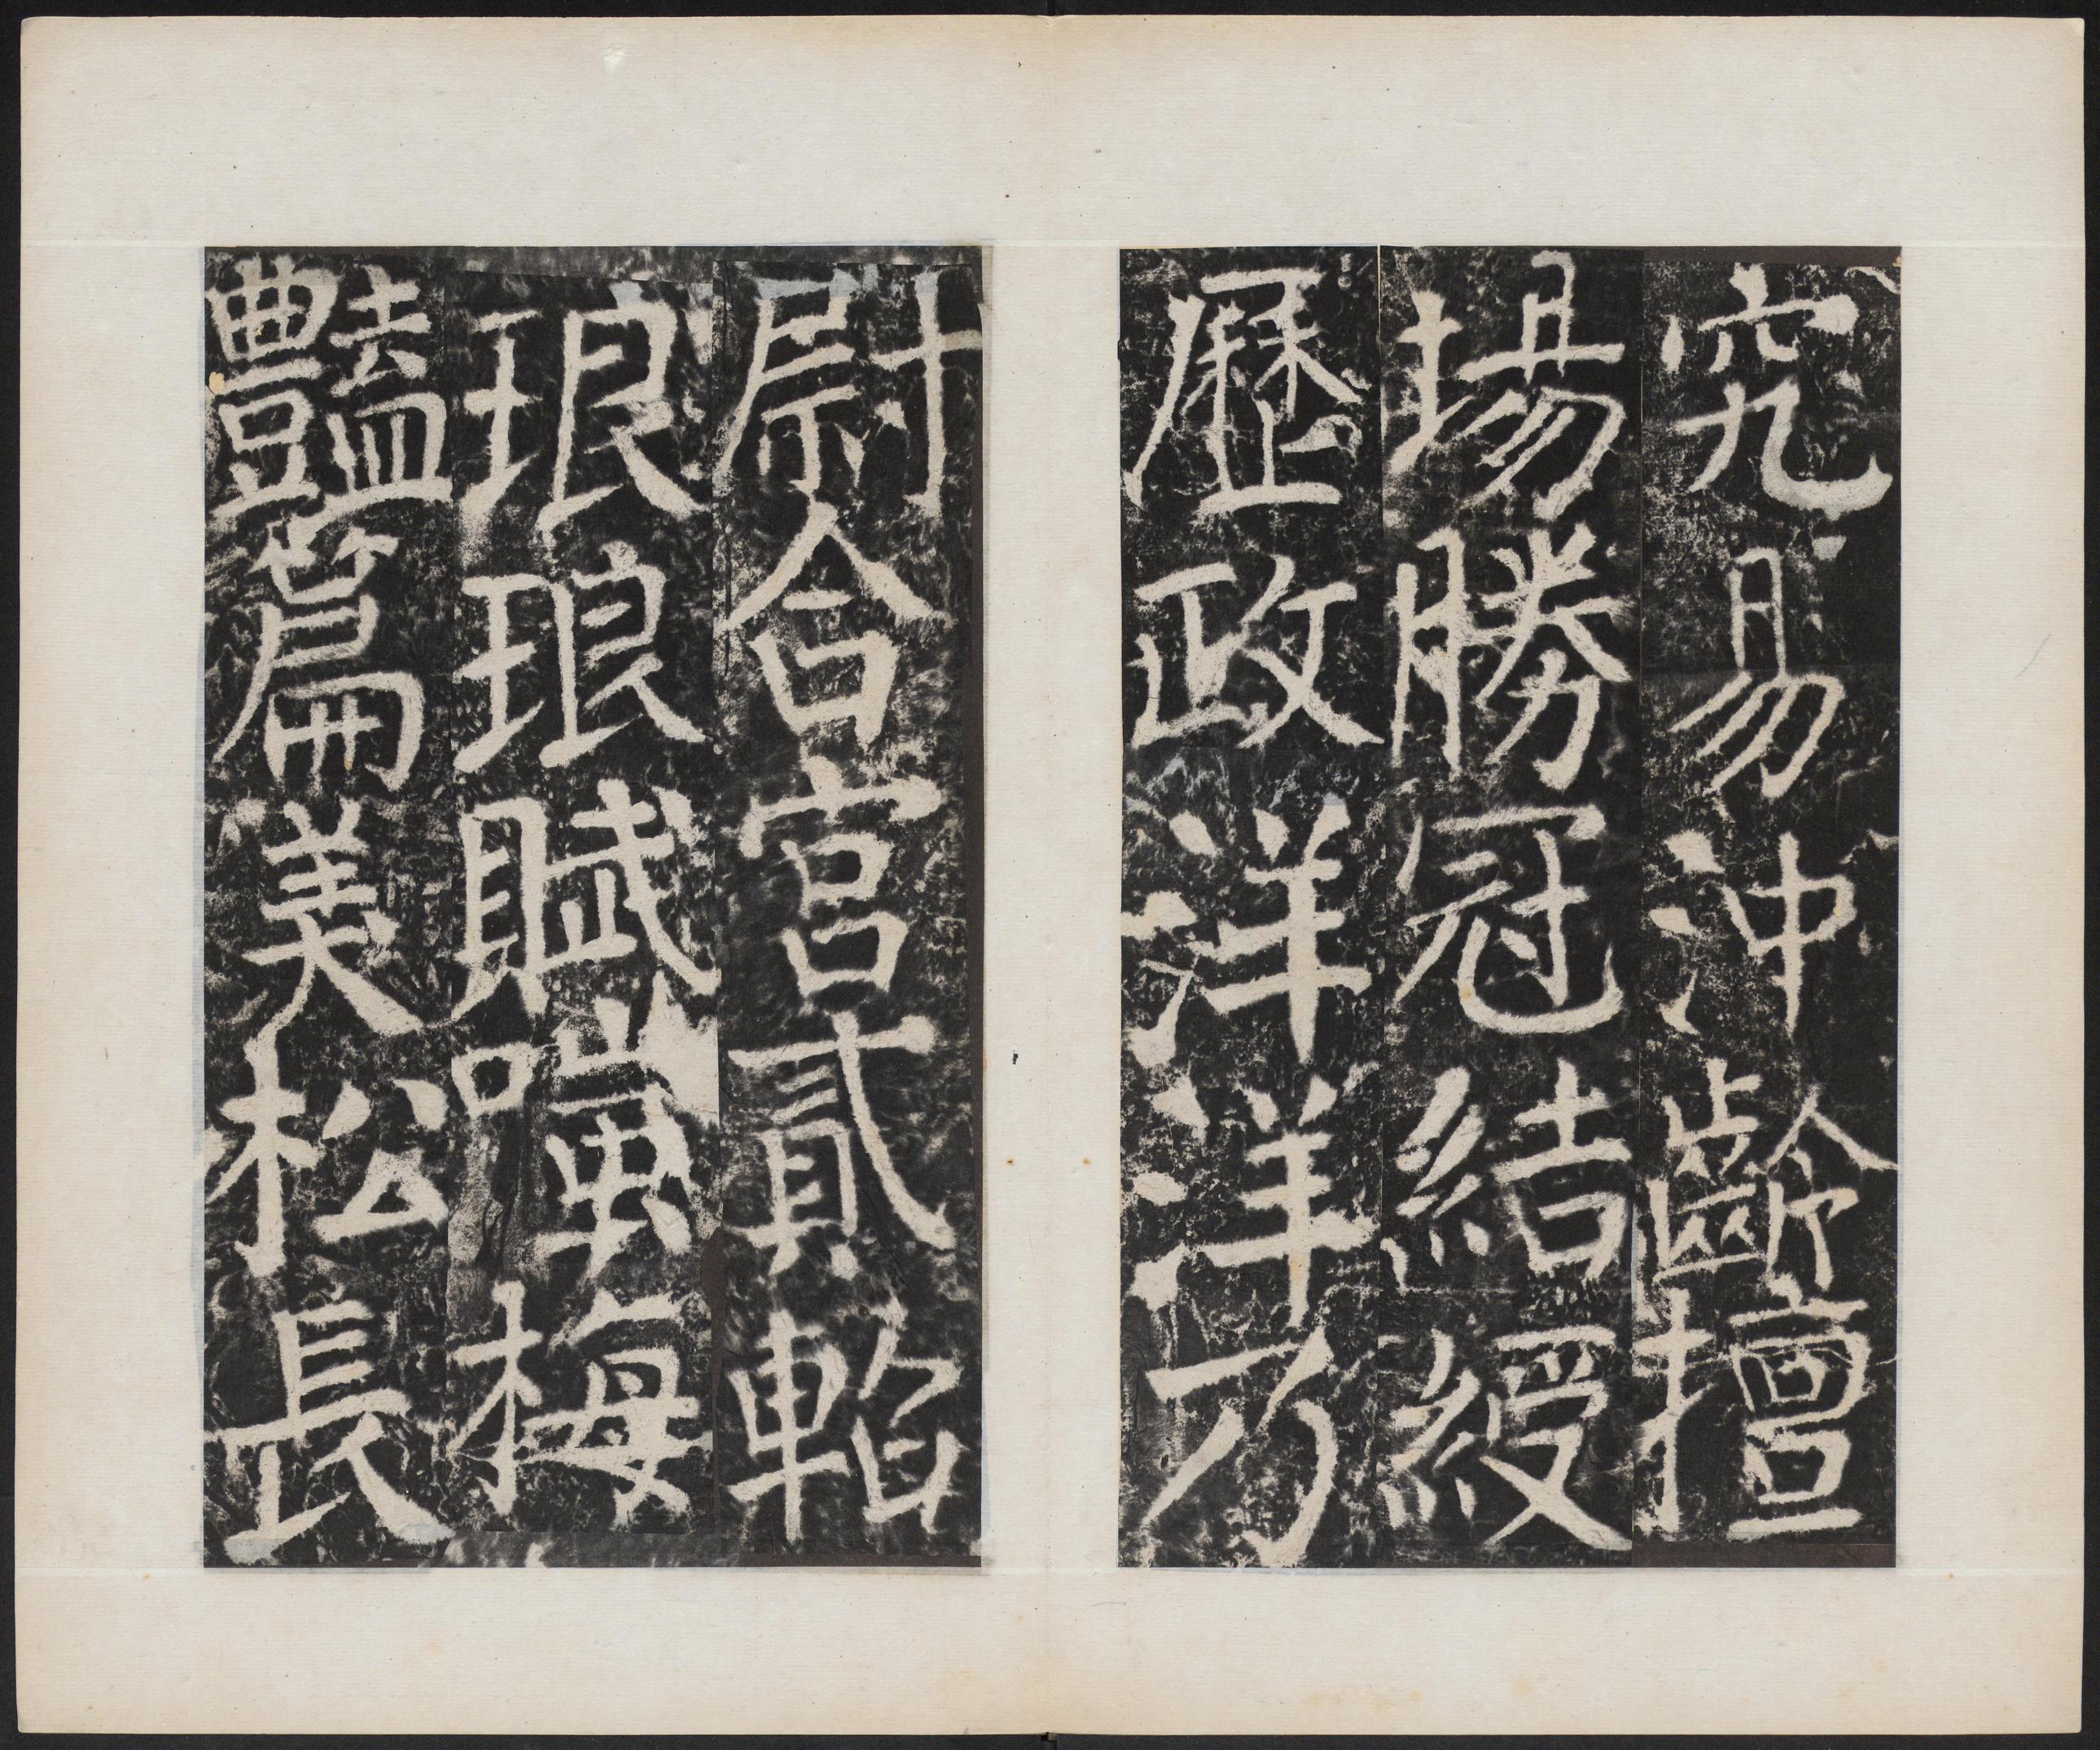 究易沖齡擅
場勝冠結綬
歷政洋洋乃
尉合宮貳軺
琅琅賦嗤梅
豔篇美松長